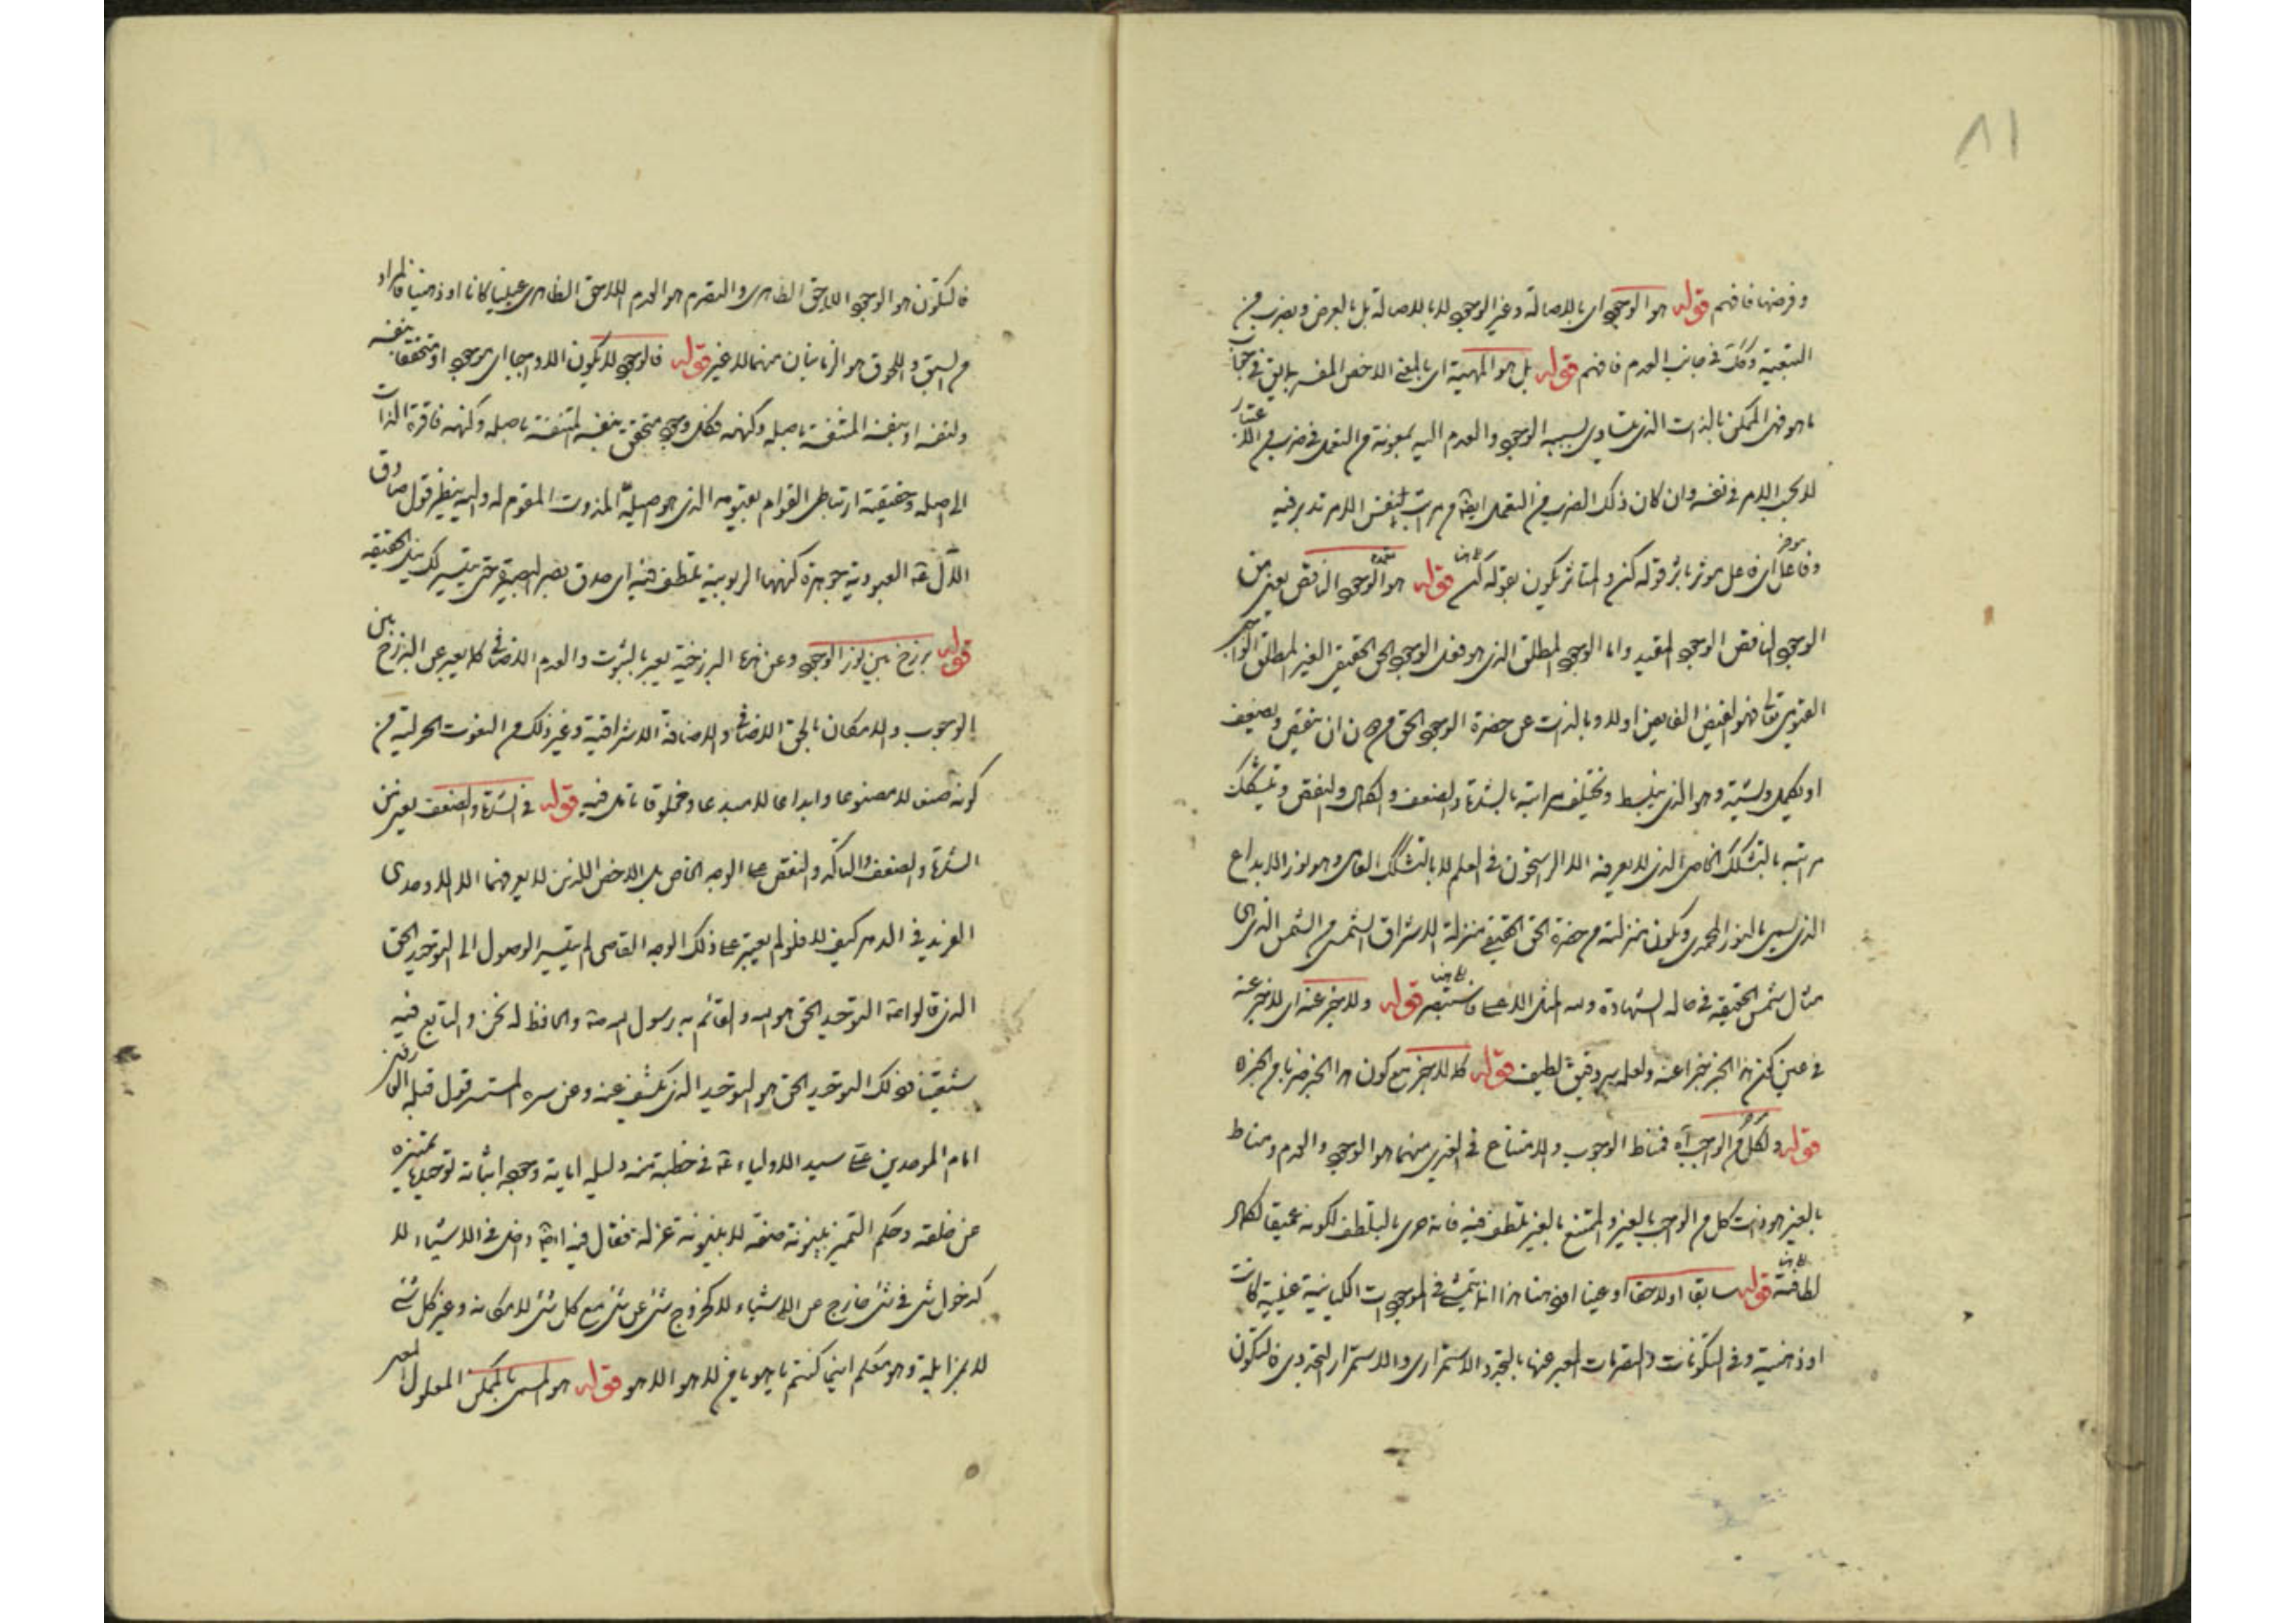 ٨١
وفرضها فافهم قوله هو الوجود اى بالاصالة وغير الوجود لا بالاصالة بل بالعرض وبضرب من
التبعية وكك فى جانب العدم فافهم قوله بل هو المهية اى بالمعنى الاخص المفسر
ما هو فهى الممكن بالذات الذى يتساوى نسبة الوجود والعدم اليه بمعونة من التعمل فى ضرب من الاعتبار
لا بحسب الامر فى نفسه وان كان ذلك الضرب من التعمل ايضا من مراتب نفس الامر تدبر فيه
وفاعل اى فاعل موثر باثر قوله كن والمتاثر يكون بقوله كن قوله هو الوجود الناقص يعنى من
الوجود الناقص الوجود المقيد واما الوجود المطلق الذى هو فعل الوجود الحق الحقيقى الغير المطلق الواجب
القيومى تعالى فهو الفيض الفايض اولا وبالذات عن حضرة الوجود الحق من دون ان ينقص ويضعف
او يكمل ويشتد وهو الذى ينبسط وتختلف مراتبه بالشدة والضعف والكمال والنقص وتتشكك
مراتبه بالتشكك الخاصى الذى لا يعرفه الا الراسخون فى العلم لا بالتشكك العامى وهو نور الابداع
الذى يسمى بالنور المحمدى ويكون منزلته من حضرة الحق الحقيقى منزلة الاشراق الشمسى من الشمس الذى
مثال شمس الحقيقة فى عالم الشهادة ولله المثل الاعلى فاستبصر قوله ولا يخبر عنه اى لا خبر عنه
فى عين كون هذا الخبر خبرا عنه ولعله سر دقيق لطيف قوله كلا لا خبر مع كون هذا الخبر ضربا من الخبر
قوله ولكل من الواجب آه فمناط الوجوب والامتناع فى الغيرى منهما هو الوجود والعدم ومناط
بالغير هو ذات كل من الواجب بالغير والممتنع بالغير تلطف فيه فانه حرى بالتلطف لكونه عميقا لكمال
لطافته قوله سابقا او لاحقا او عينا او ذهنا هذا انما يتمشى فى الموجودات الكيانية عينية كانت
او ذهنية وفى التكونات والتصرمات المعبر عنها بالتجدد الاستمرارى والاستمرار التجددى فالتكون
فالتكون هو الوجود اللاحق الظاهرى والتصرم هو العدم اللاحق الظاهرى عينيا كانا او ذهنيا فالمراد
من السبق واللحوق هو الزمانيان منهما لا غير قوله فالوجود لا يكون الا واجبا اى موجودا ومتحققا بنفسه
ولنفسه او بنفسه المتقومة باصله وكنهه فكل وجود متحقق بنفسه المتقومة باصله وكنهه فاقرة الذات
الى اصله وحقيقته ارتباطى القوام بقيومه الذى هو المقوم له واليه ينظر قول صادق
الآل عه العبودية جوهرة كنهها الربوبية تلطف فيه اى صدق بصر البصيرة حتى يتيسر لك نيل الحقيقة
قوله برزخ بين نور الوجود وعن هذه البرزخية يعبر بالثبوت والعدم الاضافى كما يعبر عن البرزخ بين
الوجوب والامكان بالحق الاضافى والاضافة الاشراقية وغير ذلك من النعوت الحرية من
كونه صنعا لا مصنوعا وابداعا لا مبدعا ومخلوقا تامل فيه قوله فى الشدة والضعف يعنى من
الشدة والضعف والتاكد والنقص على الوجه الخاص بل الاخص اللذين لا يعرفهما الا الاوحدى
الفريد فى الدهر كيف لا فلو لم يعتبر على ذلك الوجه الخاصى لم يتيسر الوصول الى التوحيد الحق
الذى قالوا عه التوحيد الحق هو الله والقائم به رسول الله ص والحافظ له نحن والتابع فيه
شيعتنا فذلك التوحيد الحق هو التوحيد الذى يكشف عنه وعن سره المستسر قول قبلة العارفين
امام الموحدين على سيد الاولياء عه فى خطبة منه دليله آياته ووجوده اثباته توحيده تمييزه
عن خلقه وحكم التمييز بينونة صفة لا بينونة عزلة فقال فيه ايضا داخل فى الاشياء لا
كدخول شئ فى شئ خارج عن الاشياء لا كخروج شئ عن شئ مع كل شئ لا بمقارنة وغير كل شئ
لا بمزايلة وهو معكم اينما كنتم يا هو يا من لا هو الا هو قوله هو المسمى بالممكن المعلول